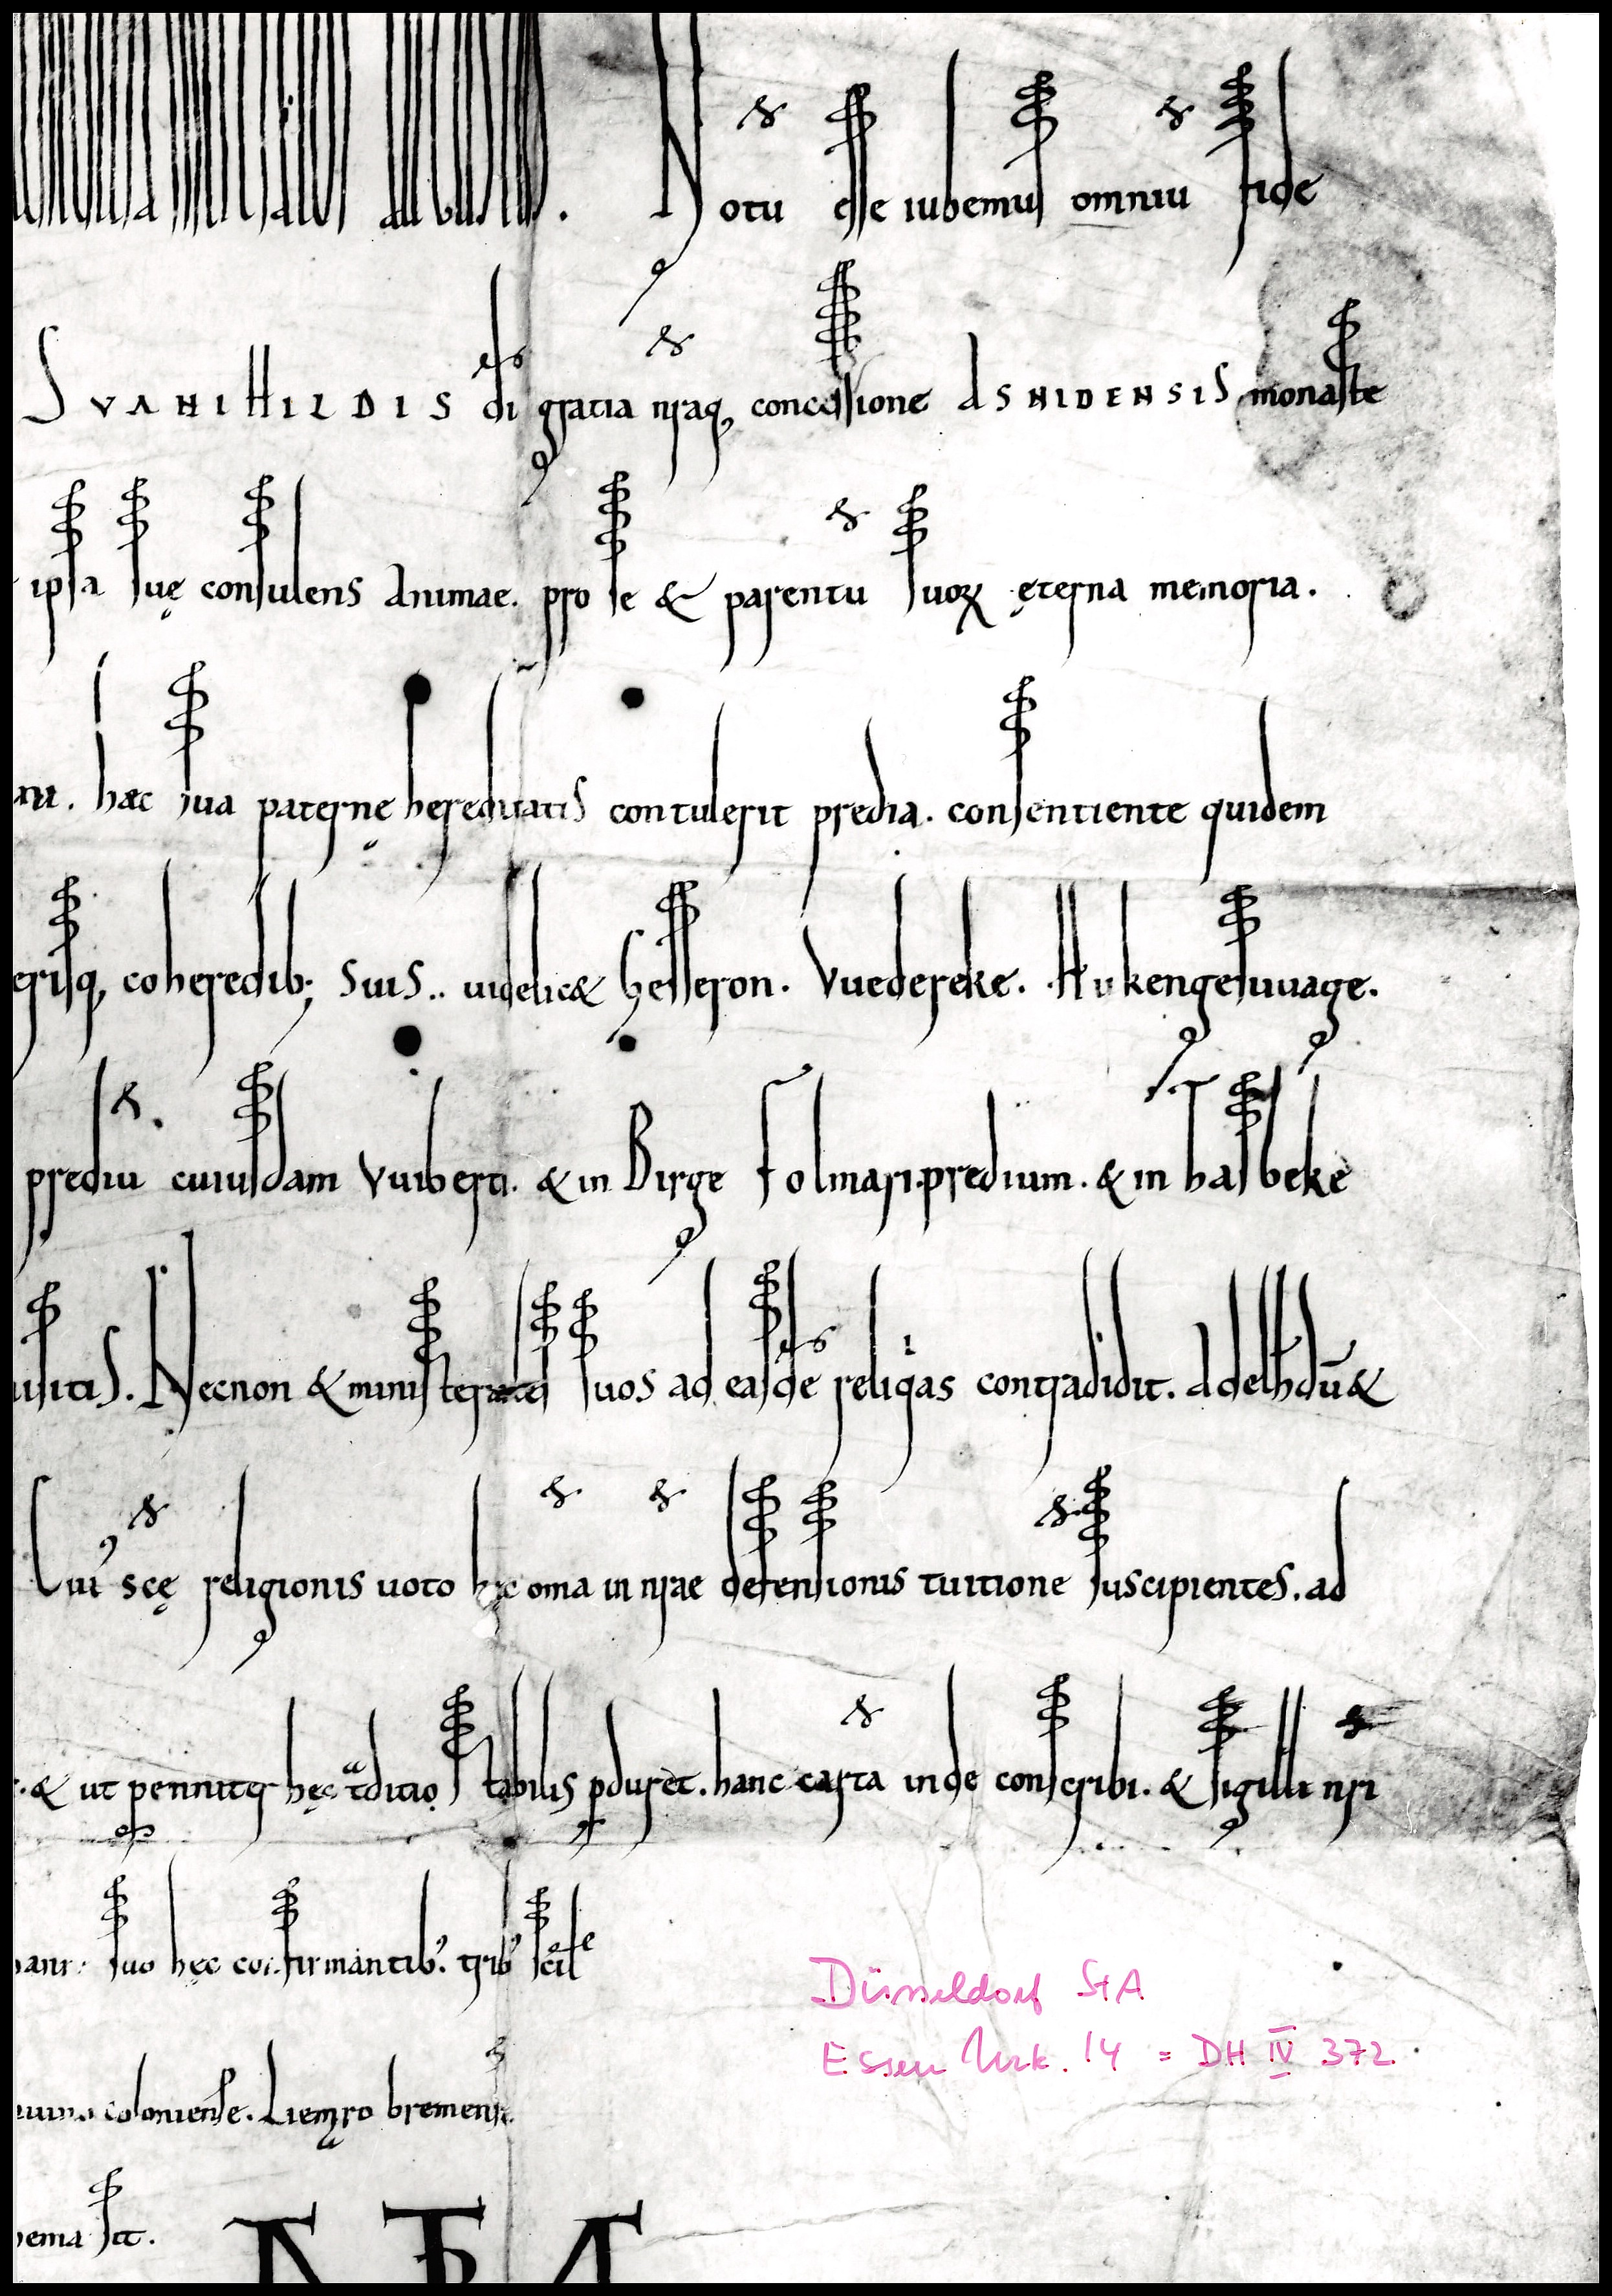 Notu esse iubemus omniu fide
SVANIHILDIS di gratia nraq; concessione ASNIDENSIS monaste
ipsa suę consulens Animae. pro se & parentu suoꝝ ęterna memoria.
hęc sua paternę hereditatis contulerit predia. consentiente quidem
coheredib; suis.. uidelic& hesseron. Vuedereke. Hukengesuuage.
prediu cuiusdam Vuiberti. & in Birge folmari predium. & in hasbeke
Necnon & ministeriales suos ad easdē religas contradidit. Adelhdū &
Cui' scę religionis uoto hęc oma in nrae defensionis tuitione suscipientes. ad
& ut penniter hęc tditio stabilis pduret. hanc carta inde conscribi. & sigilli nri
suo hęc confirmantib'. trib' scil
coloniense. Liemaro bremens
sit.
Düsseldorf StA
Essen Urk. 14 = DH IV 372